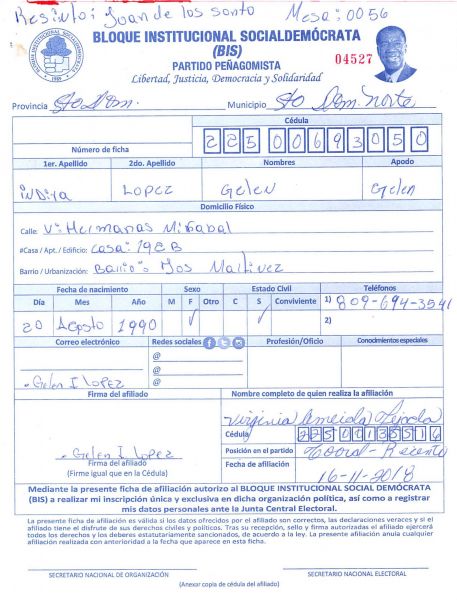 Resinto: Juan de los santo Mesa: 0056
BLOQUE INSTITUCIONAL SOCIALDEMÓCRATA
(BIS)
PARTIDO PEÑAGOMISTA
04527
Libertad, Justicia, Democracia y Solidaridad
Provincia Sto Dom. Municipio Sto Dom. Norte
Cédula
Número de ficha 22500693050
1er. Apellido 2do. Apellido Nombres Apodo
indiya LOPEZ Gelen Gelen
Domicilio Físico
Calle: V: Hermanas Mirabal
#Casa / Apt. / Edificio: Casa: 19EB
Barrio / Urbanización: Barrio: Jos Martinez
Fecha de nacimiento Sexo Estado Civil Teléfonos
Día Mes Año M F Otro C S Conviviente 1) 809-694-3541
20 Agosto 1990 2)
Correo electrónico Redes sociales Profesión/Oficio Conocimientos especiales
@
@
Gelen I LOPEZ @
Firma del afiliado Nombre completo de quien realiza la afiliación
Virginia Almeida
Cédula 22500135516
Gelen I Lopez Posición en el partido
Firma del afiliado Fecha de afiliación
(Firme igual que en la Cédula) 16-11-2018
Mediante la presente ficha de afiliación autorizo al BLOQUE INSTITUCIONAL SOCIAL DEMÓCRATA
(BIS) a realizar mi inscripción única y exclusiva en dicha organización política, así como a registrar
mis datos personales ante la Junta Central Electoral.
La presente ficha de afiliación es válida si los datos ofrecidos por el afiliado son correctos, las declaraciones veraces y si el
afiliado tiene el disfrute de sus derechos civiles y políticos. Tras su recepción, sello y firma autorizadas el afiliado ejercerá
todos los derechos y los deberes estatutariamente sancionados, de acuerdo a la ley. La presente afiliación anula cualquier
afiliación realizada con anterioridad a la fecha que aparece en esta ficha.
SECRETARIO NACIONAL DE ORGANIZACIÓN SECRETARIO NACIONAL ELECTORAL
(Anexar copia de cédula del afiliado)